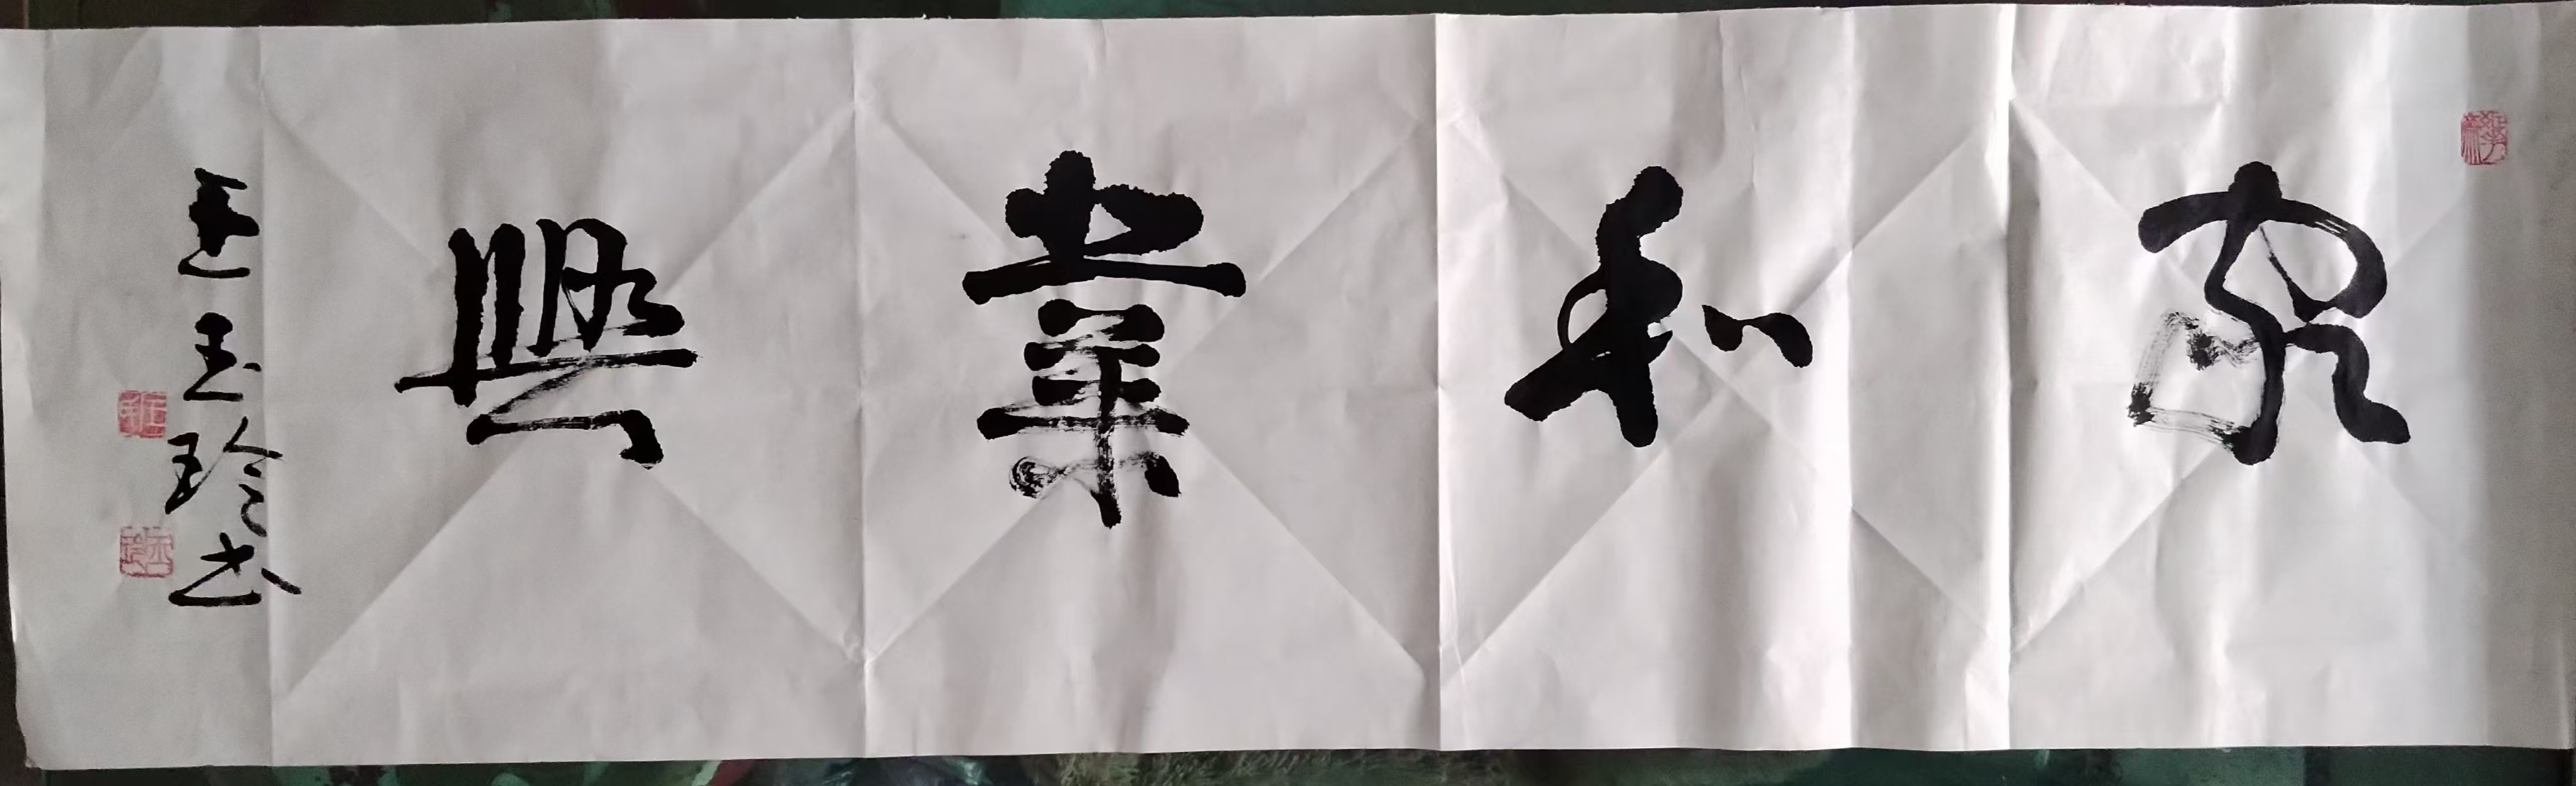 家和業興
王玉玲书